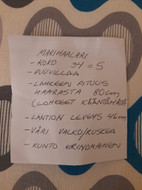 MARIHAALARI
- KOKO 34 = S
- PUUVILLAA
- LAHKEEN PITUUS
HAARASTA 80cm
(LAHKEET KÄÄNTÄMÄTTÄ)
- LANTION LEVEYS 46cm
- VÄRI VALKO/RUSKEA
- KUNTO ERINOMAINEN